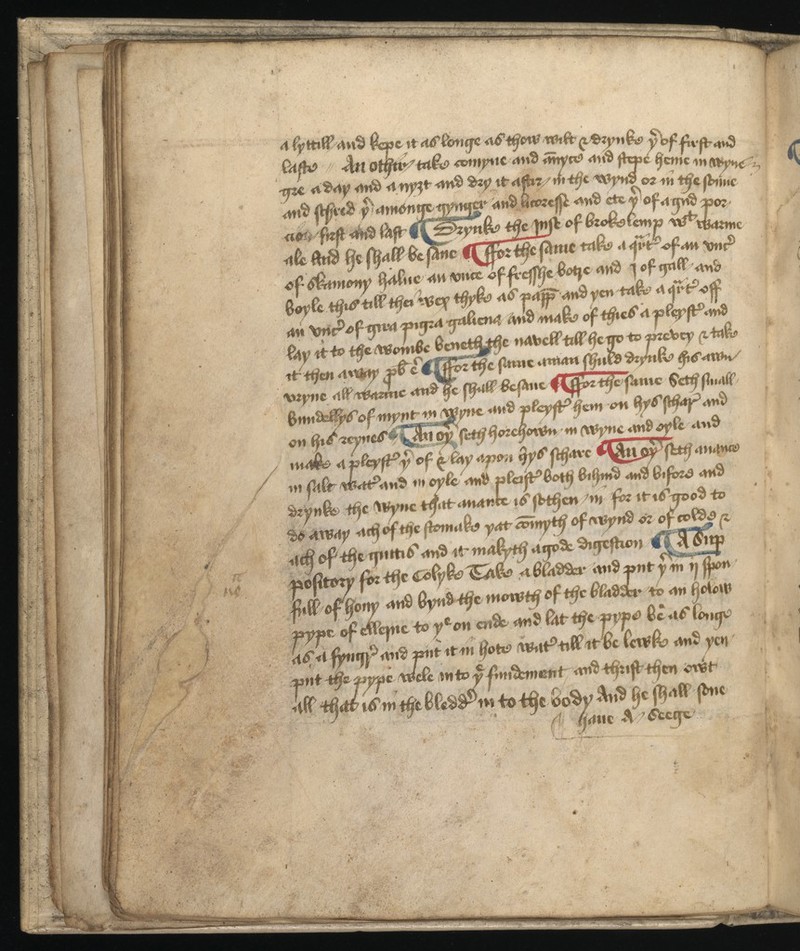 a lyttill and kepe it as longe as thow wilt & drynke yͬ of first and
laste An other take comyne and annyce and stepe heme in wyne
gre a day and a nyȝt and dry it aftr in the wynd or in the sonne
and schred yͬ amonge gynger and licoresse and ete yͬ of a gud por
cion first and last ¶ Drynke the Juse of broke lemp wͭ warme
ale And he shall be sane ¶ ffor the same take a qͬrtͬ of an vncͬ
of skamony halue an vnce of fresshe botre and j of gall and
boyle this till thei wex thyke as papp and yen take a qͬrtͬ off
an vncͬ of gira pigra galiena and make of thies a pleystͬ and
lay it to the wombe beneth the navell till he go to prevey & take
it then away ¶ ffor the same a man shuld drynke his awn
vryne all warme and he shall be sane ¶ ffor the same Seth small
bundellys of mynt in wyne and pleystͬ hem on hys scharͬ and
on his reynes ¶ An oyͬ seth horehown in wyne and oyle and
make a pleystͬ yͬ of & lay apon hys schare ¶ An oyͬ seth auance
in salt watͬ and in oyle and pleistͬ both bihind and bifore and
drynke the wyne that auance is sothen in for it is good to
do away ach of the stomake yat comyth of wynd or of colde &
ach of the guttis and it makyth a gode digestion ¶ A Sup
pository for the Colyke Take a bladder and put yͬ in ij spon
full of hony and bynd the mowth of the bladder to an holow
pype of ellerne to yͤ on ende and lat the pype be as longe
as a fyngͬ and put it in hote watͬ till it be lewke and yen
put the pype wele in to yͤ fundement and thrist then owt
all that is in the bleddͬ in to the body And he shall sone
haue A Seege